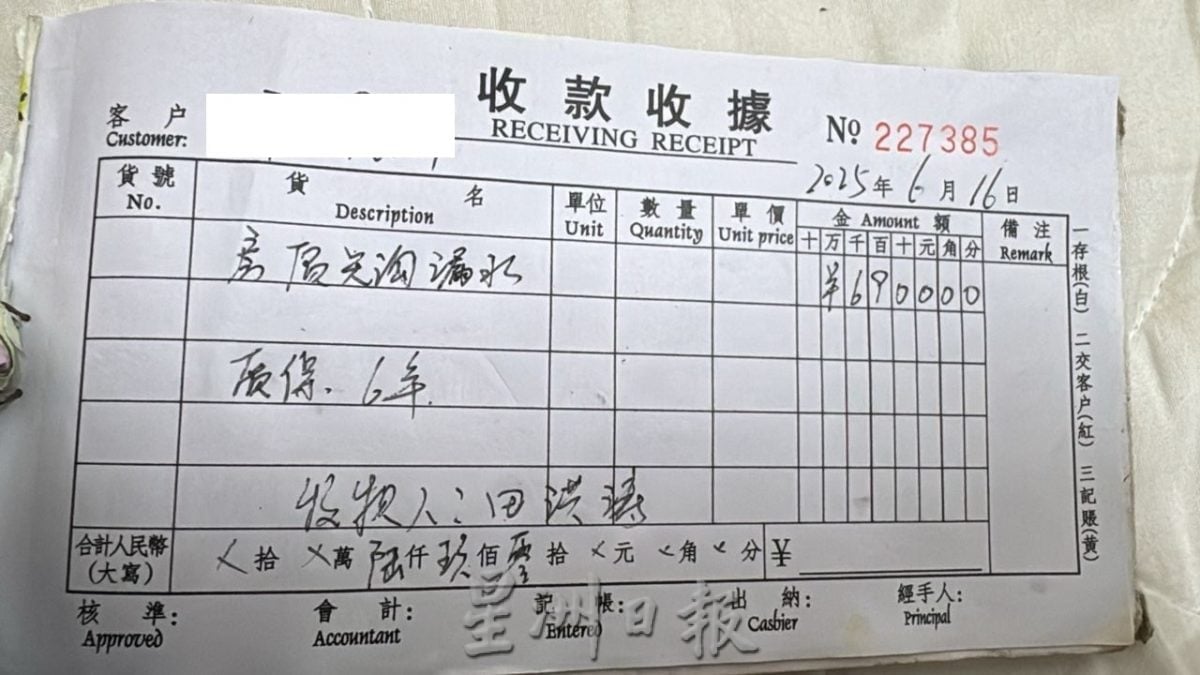 收款收據
RECEIVING RECEIPT
客户
Customer:
№ 227385
2025年6月16日
貨號 貨名 單位 數量 單價 金 Amount 額 備注
No. Description Unit Quantity Unit price 十万千百十元角分 Remark
漏水 ¥690000
质保. 6年.
收 人：田洪
合計人民幣 ㄨ拾ㄨ萬陆仟玖佰零拾ㄨ元ㄨ角ㄨ分 ¥
(大寫)
核準： 會計： 記帳： 出納： 經手人：
Approved Accountant Entered Casbier Principal
一存根(白) 二交客户(紅) 三記賬(黄)
星洲日報